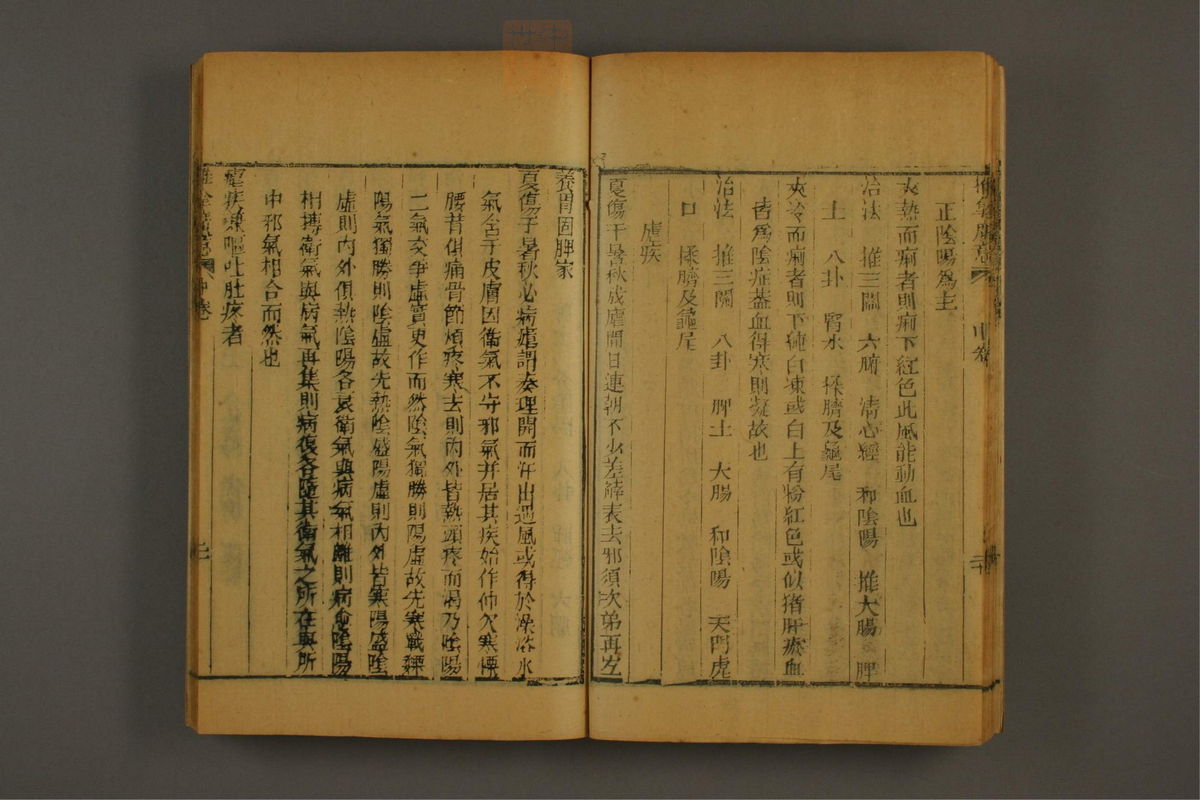 正陰陽爲主
夾熱而痢者則痢下紅色此風能動血也
治法 推三關 六腑 清心經 和陰陽 推大腸 脾
土 八卦 腎水 揉臍及龜尾
夾冷而痢者則下純白凍或白上有粉紅色或似猪肝瘀血
皆爲陰症蓋血得寒則凝故也
治法 推三關 八卦 脾土 大腸 和陰陽 天門虎
口 揉臍及龜尾
瘧疾
夏傷于暑秋成瘧間日連朝不少差解表去邪須次第再左
養胃固脾家
夏傷于暑秋必病瘧謂奏理開而汗出遇風或得於澡浴水
氣舍于皮膚因衛氣不守邪氣并居其疾始作伸欠寒慄
腰脊俱痛骨節煩疼寒去則內外皆熱頭疼而渴乃陰陽
二氣交爭虛實更作而然陰氣獨勝則陽虛故先寒戰慄
陽氣獨勝則陰虛故先熱陰盛陽虛則內外皆寒陽盛陰
虛則內外俱熱陰陽各衰衛氣與病氣相離則病愈陰陽
相搏衛氣與病氣再集則病復各隨其衛氣之所在與所
中邪氣相合而然也
瘧疾兼嘔吐肚疼者
中卷